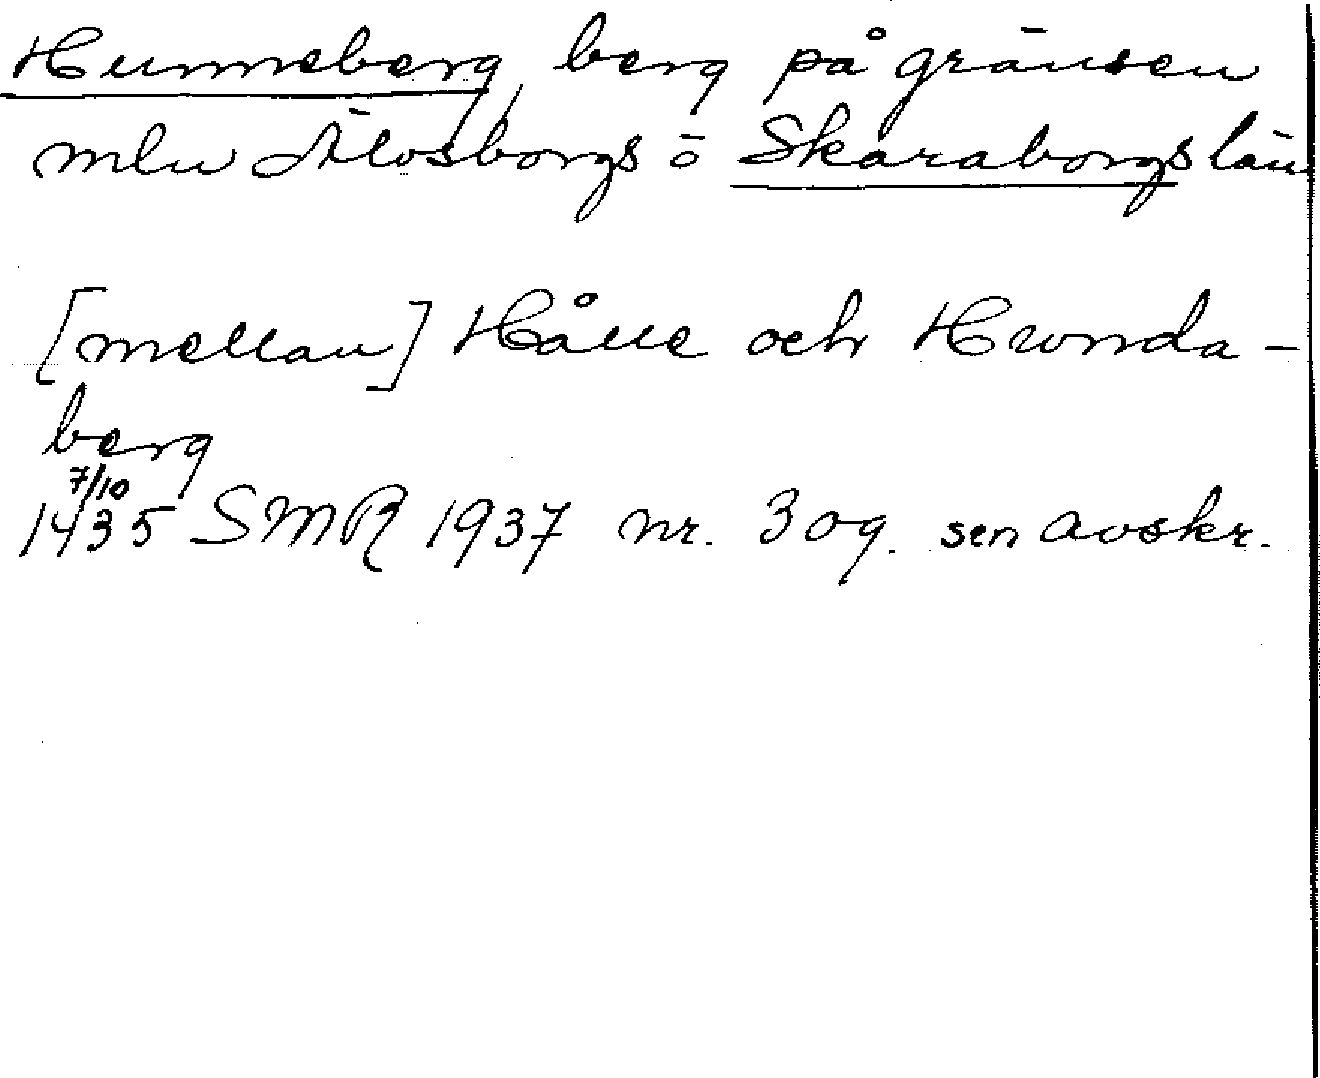 Hunneberg, berg på gränsen
mln Älvsborgs o Skaraborgs län
[mellan] Hålle och Hwnda-
berg
7/10
1435 SMR 1937 nr. 309. sen avskr.